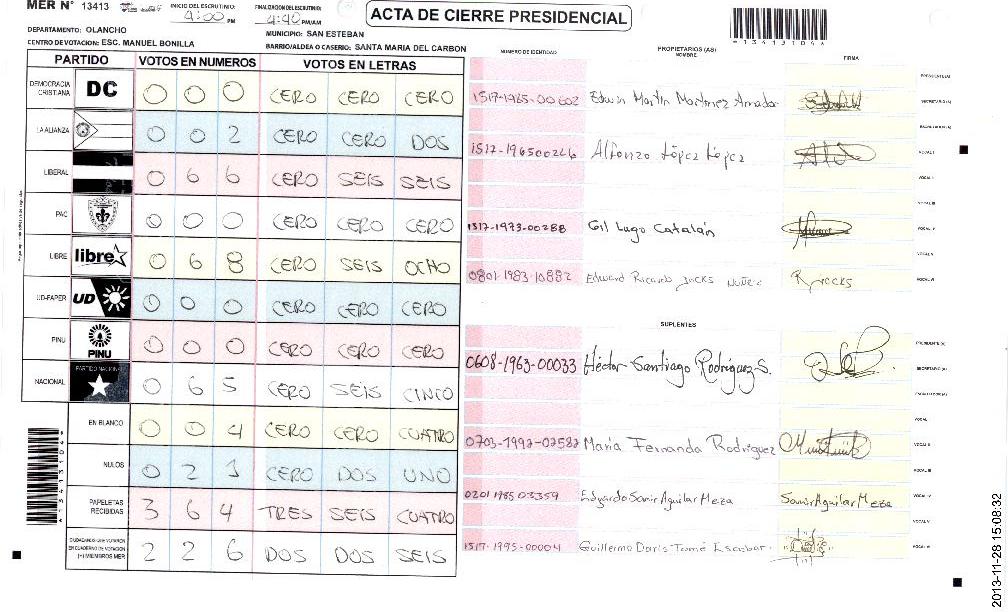 MER N° 13413
INICIO DEL ESCRUTINIO: 4:00 PM
FINALIZACION DEL ESCRUTINIO: 4:40 PM/AM
ACTA DE CIERRE PRESIDENCIAL
*13413104*
DEPARTAMENTO: OLANCHO
MUNICIPIO: SAN ESTEBAN
CENTRO DE VOTACION: ESC. MANUEL BONILLA
BARRIO/ALDEA O CASERIO: SANTA MARIA DEL CARBON
PARTIDO VOTOS EN NUMEROS VOTOS EN LETRAS
DEMOCRACIA CRISTIANA DC 0 0 0 CERO CERO CERO
LA ALIANZA 0 0 2 CERO CERO DOS
LIBERAL 0 6 6 CERO SEIS SEIS
PAC 0 0 0 CERO CERO CERO
LIBRE libre 0 6 8 CERO SEIS OCHO
UD-FAPER UD 0 0 0 CERO CERO CERO
PINU PINU 0 0 0 CERO CERO CERO
NACIONAL PARTIDO NACIONAL 0 6 5 CERO SEIS CINCO
EN BLANCO 0 0 4 CERO CERO CUATRO
NULOS 0 2 1 CERO DOS UNO
PAPELETAS RECIBIDAS 3 6 4 TRES SEIS CUATRO
CIUDADANOS QUE VOTARON EN CUADERNO DE VOTACION (+) MIEMBROS MER 2 2 6 DOS DOS SEIS
NUMERO DE IDENTIDAD PROPIETARIOS (AS) NOMBRE FIRMA
PRESIDENTE(A)
1517-1985-00602 Edwin Martin Martinez Amador
SECRETARIO(A)
ESCRUTADOR(A)
1517-196500226 Alfonzo López López
VOCAL I
VOCAL II
VOCAL III
1517-1973-00288 Gil Lugo Catalán
VOCAL IV
VOCAL V
0801-1983-10882 Edward Ricardo Jacks Nuñez R Jacks
VOCAL VI
SUPLENTES
PRESIDENTE(A)
0608-1963-00033 Héctor Santiago Rodriguez S.
SECRETARIO(A)
ESCRUTADOR(A)
VOCAL I
0703-1992-02582 Maria Fernanda Rodriguez
VOCAL II
VOCAL III
0201 1985 03359 Edgardo Samir Aguilar Meza Samir Aguilar Meza
VOCAL IV
VOCAL V
1517-1995-00004 Guillermo Doris Tomé Escobar
VOCAL VI
2013-11-28 15:08:32